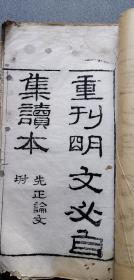 重刊明文必自
集讀本
先正論文
坿